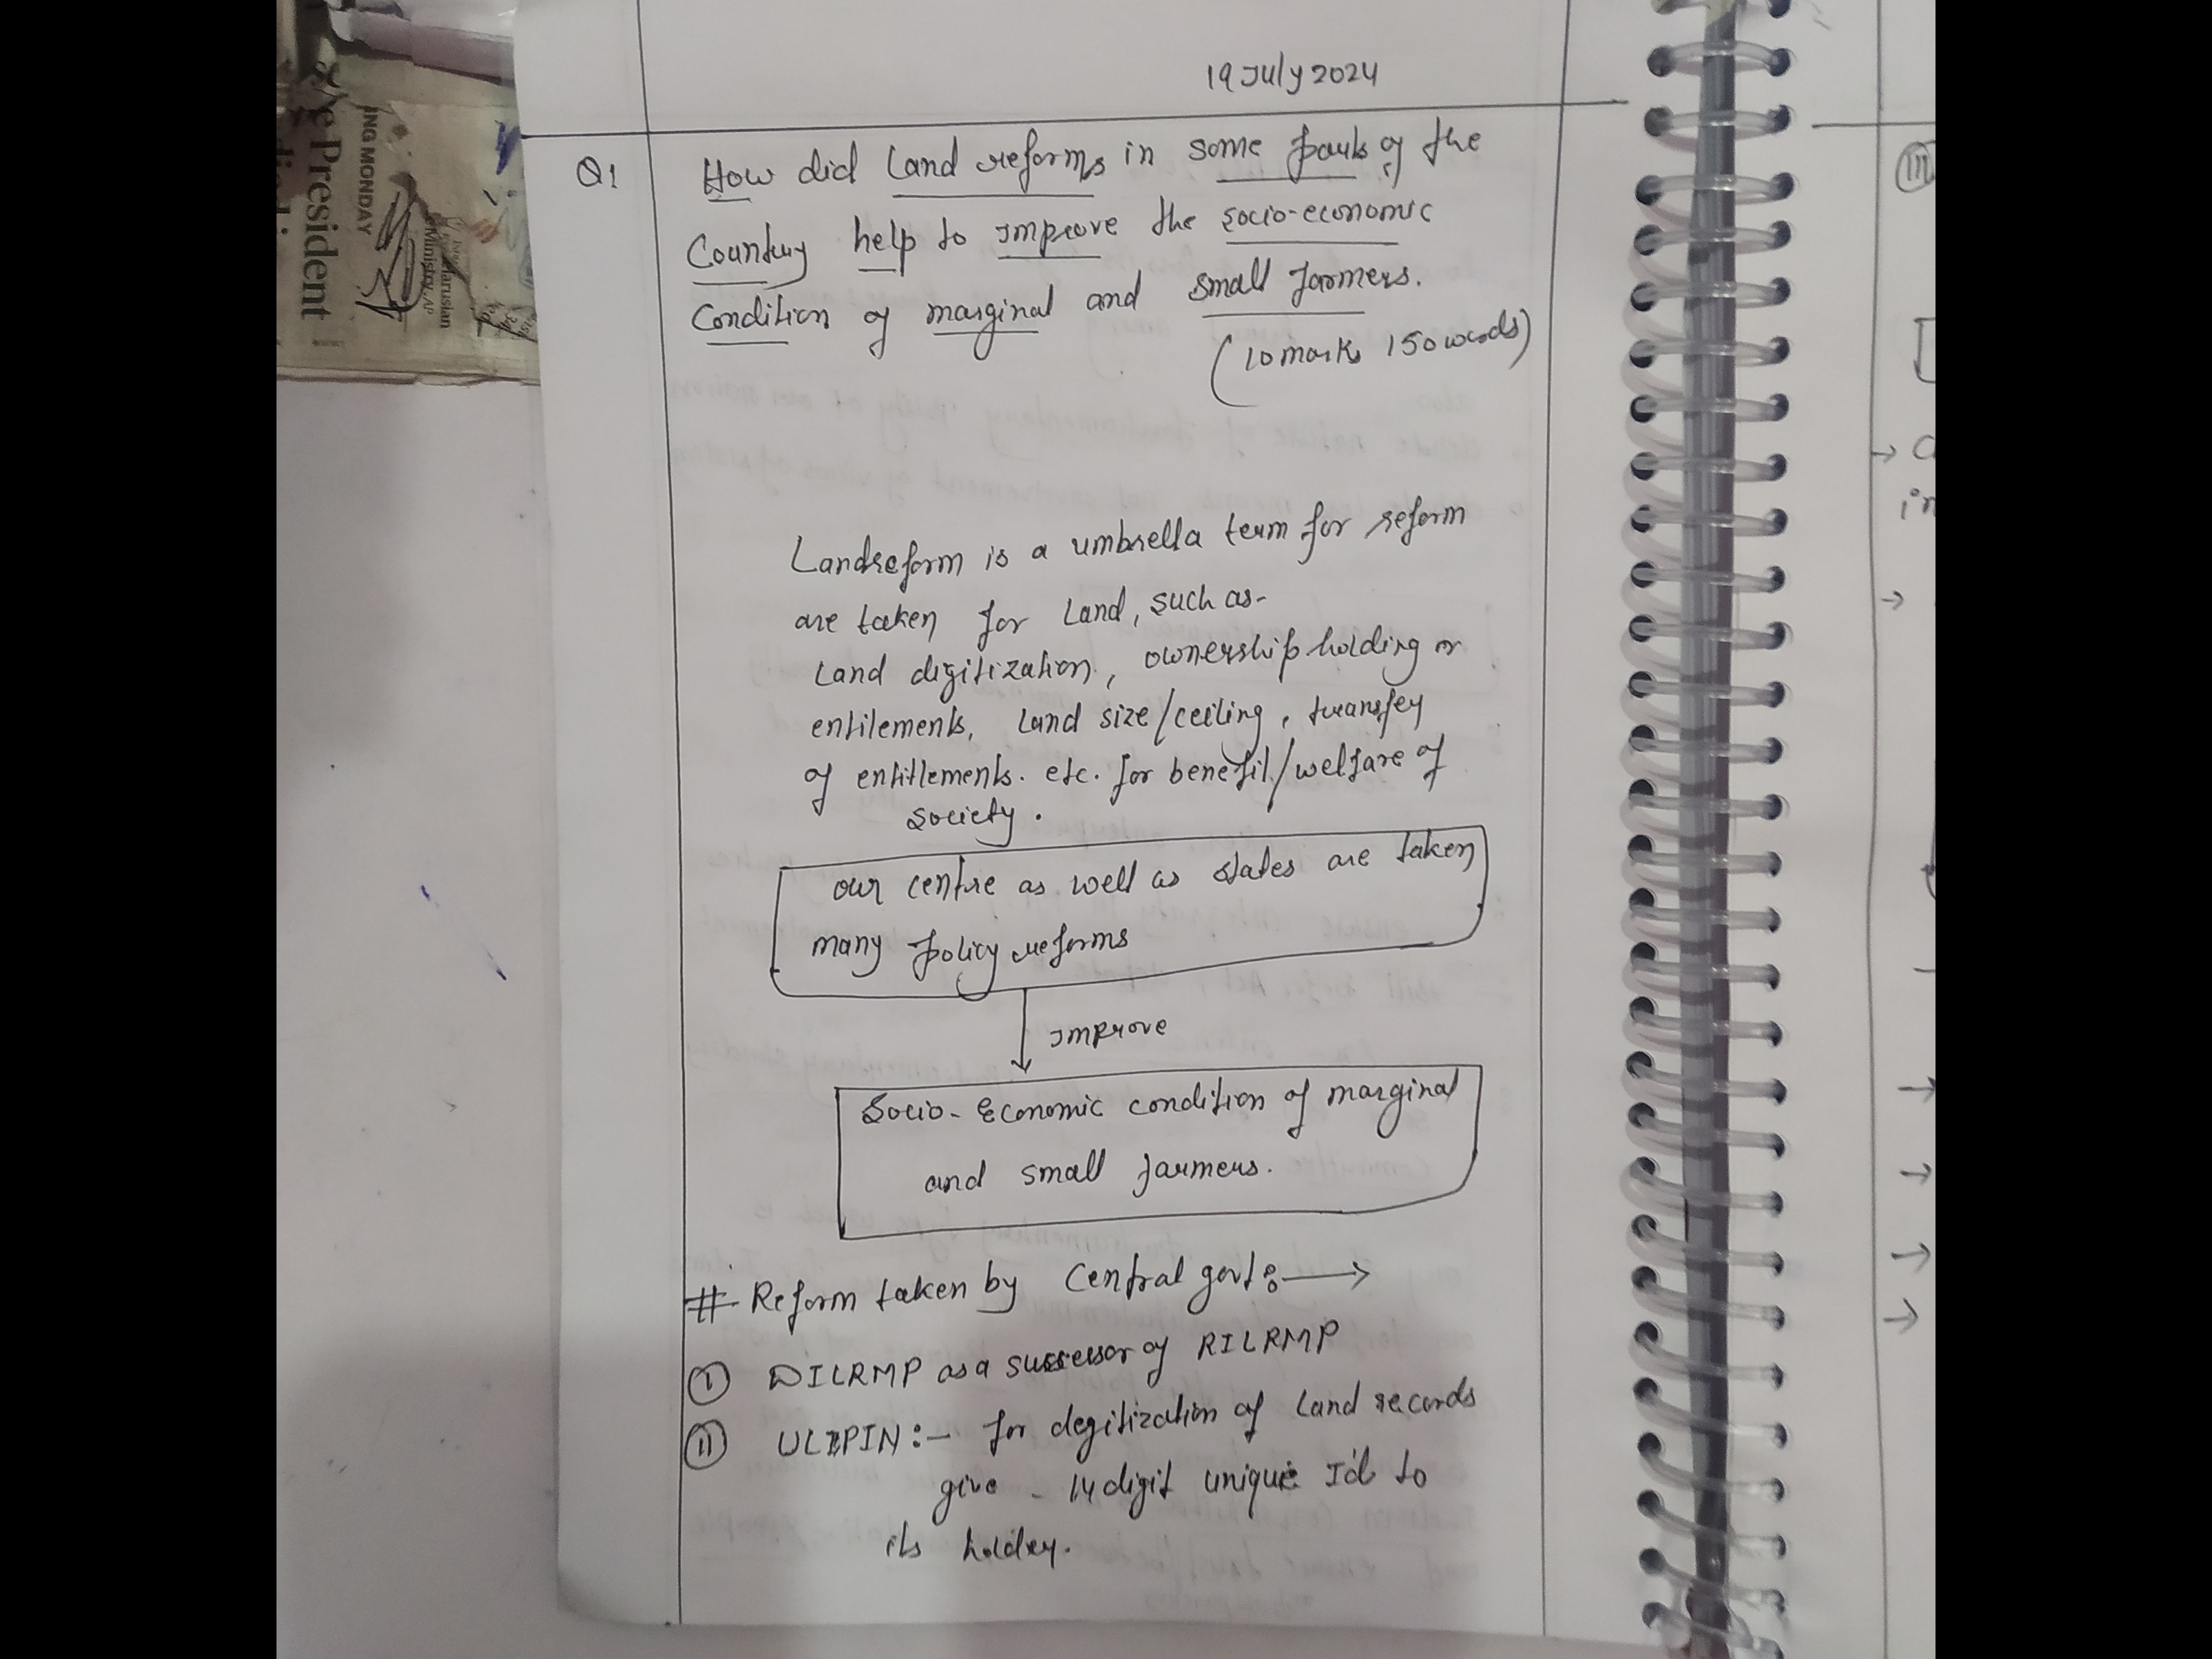 e President
ING MONDAY
Ministry. AP
19 July 2024
Q1 How did Land reforms in some parts of the
Country help to improve the socio-economic
Condition of marginal and small farmers.
(10 marks 150 words)
Landreform is a umbrella term for reform
are taken for Land, such as-
Land digitization, ownership holding or
entilements, Land size/ceiling, transfer
of entitlements. etc. for benefit/welfare of
society.
our centre as well as states are taken
many policy reforms
improve
Socio-Economic condition of marginal
and small farmers.
# Reform taken by Central govt:→
I DILRMP as a successor of RILRMP
II ULPIN:- for degitization of Land records
give - 14 digit unique Id to
its holder.
III
→
in
→
→
→
→
→